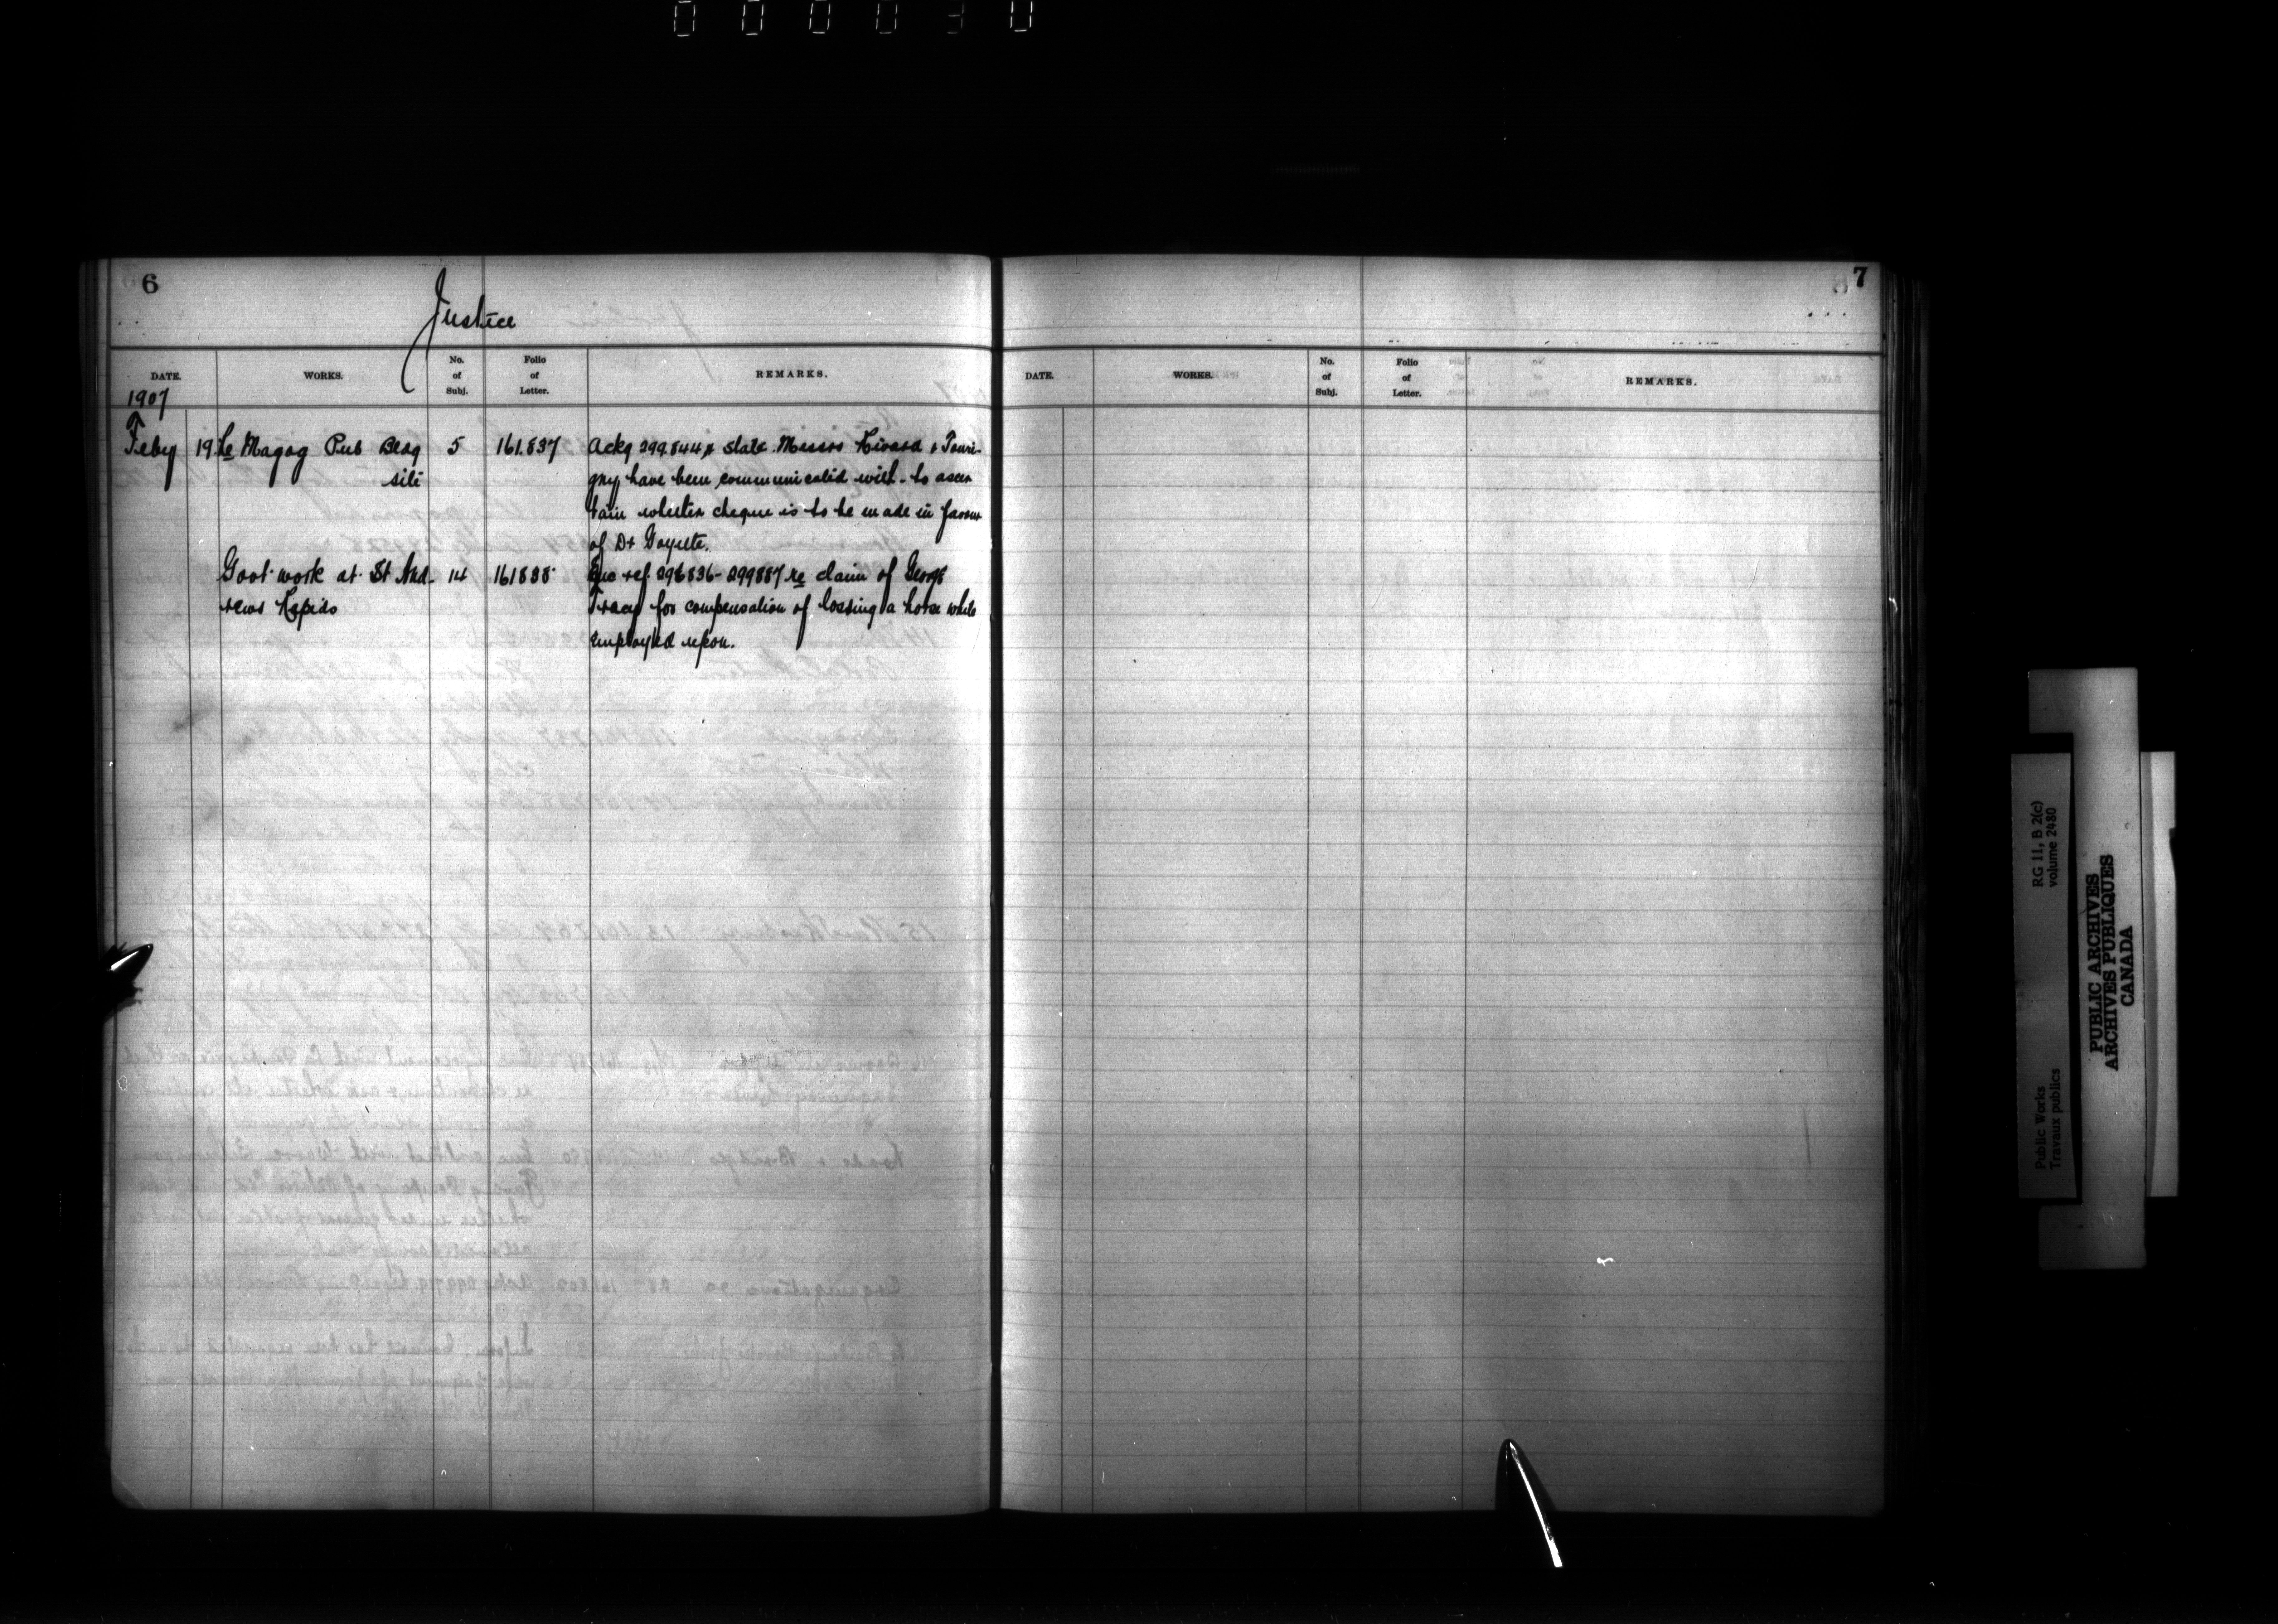 000030
6
Justice
DATE. WORKS. No. of Subj. Folio of Letter. REMARKS.
1907
Feby 19 Re Magog Pub Bldg 5 161.837 Ackg 299.844 & state Messrs Rivard & Touri-
site gny have been communicated with to ascer
tain whether cheque is to be made in favour
of Dr Goyette.
Govt work at St And- 14 161838 Enc ref. 298836-299887 re claim of George
rews Rapids Tracy for compensation of lossing a horse while
employed upon.
7
DATE. WORKS. No. of Subj. Folio of Letter. REMARKS.
RG 11, B 2(c)
volume 2480
Public Works
Travaux publics
PUBLIC ARCHIVES
ARCHIVES PUBLIQUES
CANADA